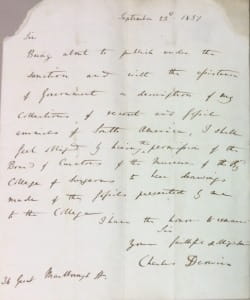 September 23d 1837
Sir
Being about to publish under the
sanction and with the assistance
of Government a description of my
Collections of recent and fossil
animals of South America, I shall
feel obliged by having the permission of the
Board of Curators of the Museum of the Ry
College of Surgeons to have drawings
made of the fossils presented by me
to the College.
I have the honor to remain
Sir
Your faithful &
Charles Darwin
36 Great Marlborough St.